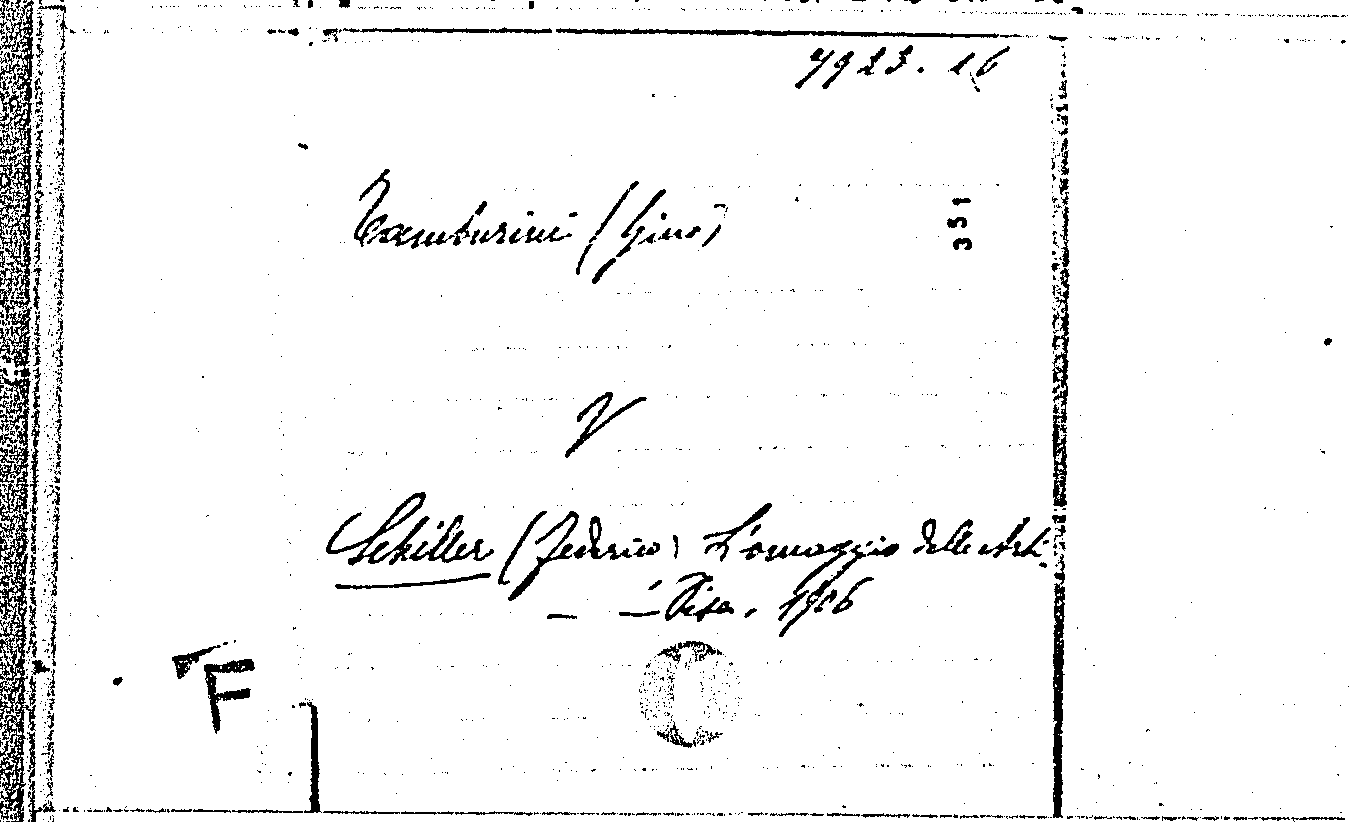 7923.16
Tamburini (Gino)
351
V
Schiller (Federico) L'omaggio delle Arti.
— — Pisa. 1906
F